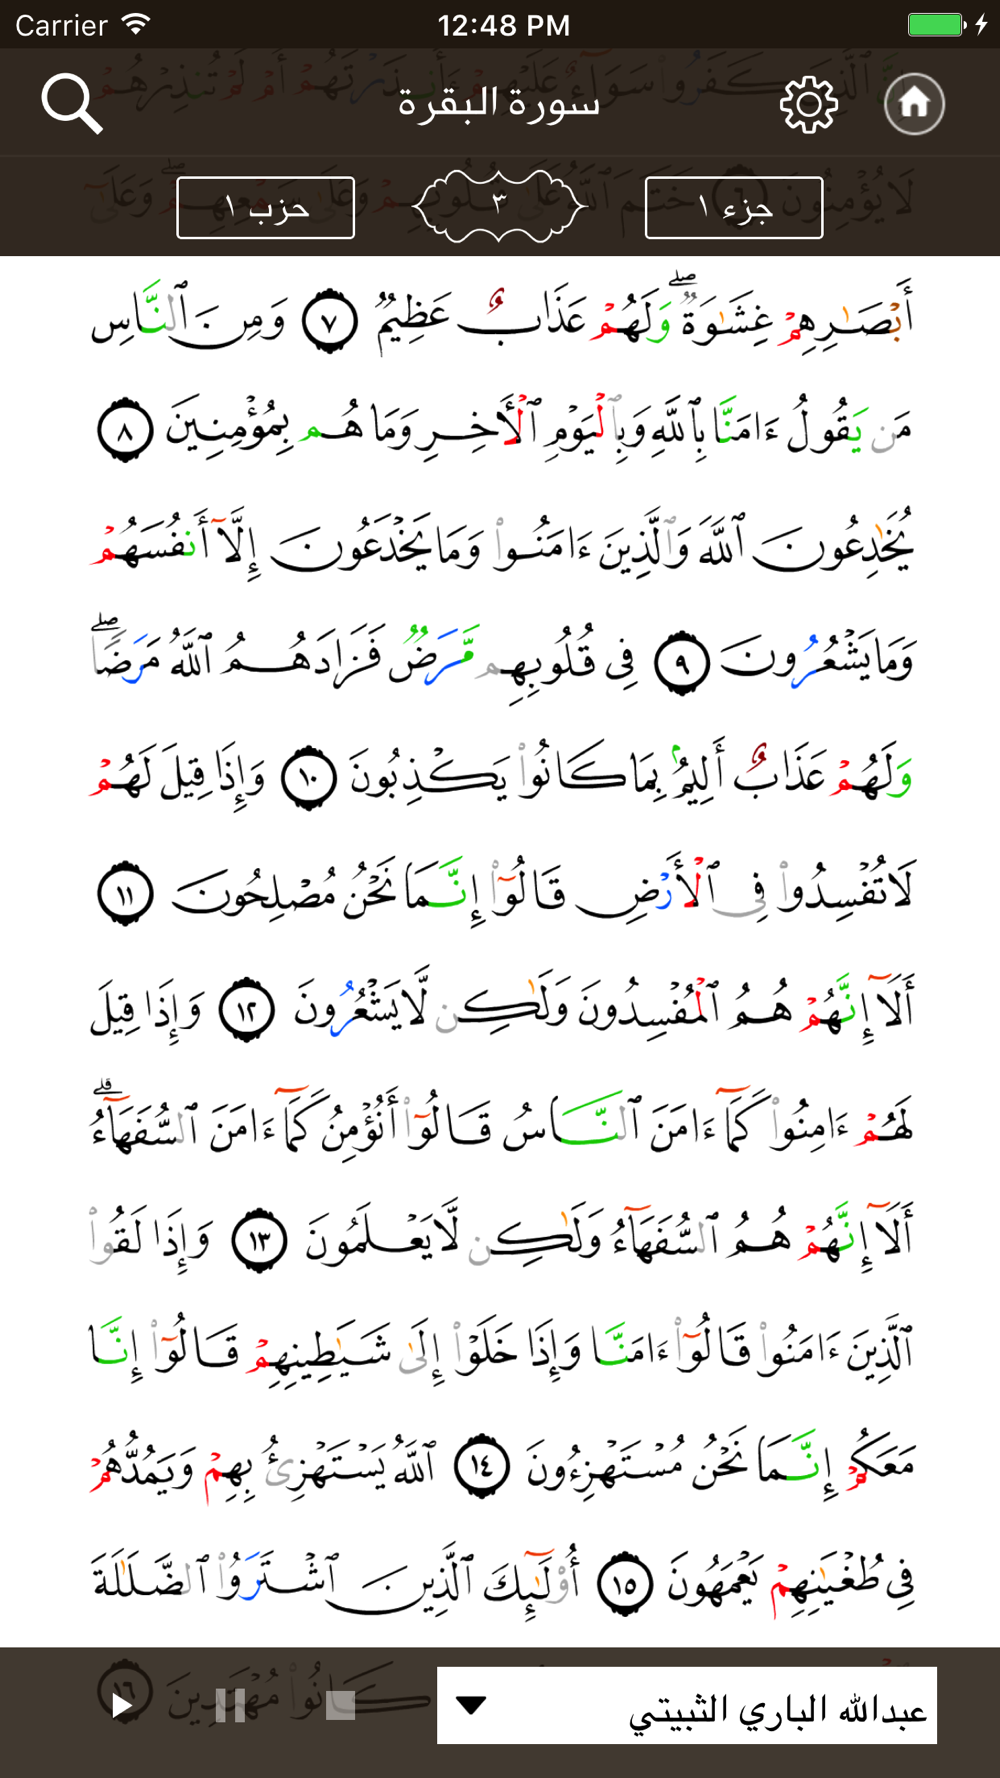 Carrier 12:48 PM
سورة البقرة
جزء ١ ٣ حزب ١
أَبْصَـٰرِهِمْ غِشَـٰوَةٌ ۖ وَلَهُمْ عَذَابٌ عَظِيمٌ ٧ وَمِنَ ٱلنَّاسِ
مَن يَقُولُ ءَامَنَّا بِٱللَّهِ وَبِٱلْيَوْمِ ٱلْـَٔاخِرِ وَمَا هُم بِمُؤْمِنِينَ ٨
يُخَـٰدِعُونَ ٱللَّهَ وَٱلَّذِينَ ءَامَنُوا۟ وَمَا يَخْدَعُونَ إِلَّآ أَنفُسَهُمْ
وَمَا يَشْعُرُونَ ٩ فِى قُلُوبِهِم مَّرَضٌ فَزَادَهُمُ ٱللَّهُ مَرَضًا ۖ
وَلَهُمْ عَذَابٌ أَلِيمٌۢ بِمَا كَانُوا۟ يَكْذِبُونَ ١٠ وَإِذَا قِيلَ لَهُمْ
لَا تُفْسِدُوا۟ فِى ٱلْأَرْضِ قَالُوٓا۟ إِنَّمَا نَحْنُ مُصْلِحُونَ ١١
أَلَآ إِنَّهُمْ هُمُ ٱلْمُفْسِدُونَ وَلَـٰكِن لَّا يَشْعُرُونَ ١٢ وَإِذَا قِيلَ
لَهُمْ ءَامِنُوا۟ كَمَآ ءَامَنَ ٱلنَّاسُ قَالُوٓا۟ أَنُؤْمِنُ كَمَآ ءَامَنَ ٱلسُّفَهَآءُ ۗ
أَلَآ إِنَّهُمْ هُمُ ٱلسُّفَهَآءُ وَلَـٰكِن لَّا يَعْلَمُونَ ١٣ وَإِذَا لَقُوا۟
ٱلَّذِينَ ءَامَنُوا۟ قَالُوٓا۟ ءَامَنَّا وَإِذَا خَلَوْا۟ إِلَىٰ شَيَـٰطِينِهِمْ قَالُوٓا۟ إِنَّا
مَعَكُمْ إِنَّمَا نَحْنُ مُسْتَهْزِءُونَ ١٤ ٱللَّهُ يَسْتَهْزِئُ بِهِمْ وَيَمُدُّهُمْ
فِى طُغْيَـٰنِهِمْ يَعْمَهُونَ ١٥ أُو۟لَـٰٓئِكَ ٱلَّذِينَ ٱشْتَرَوُا۟ ٱلضَّلَـٰلَةَ
كَانُوا۟ مُهْتَدِينَ ١٦
عبدالله الباري الثبيتي